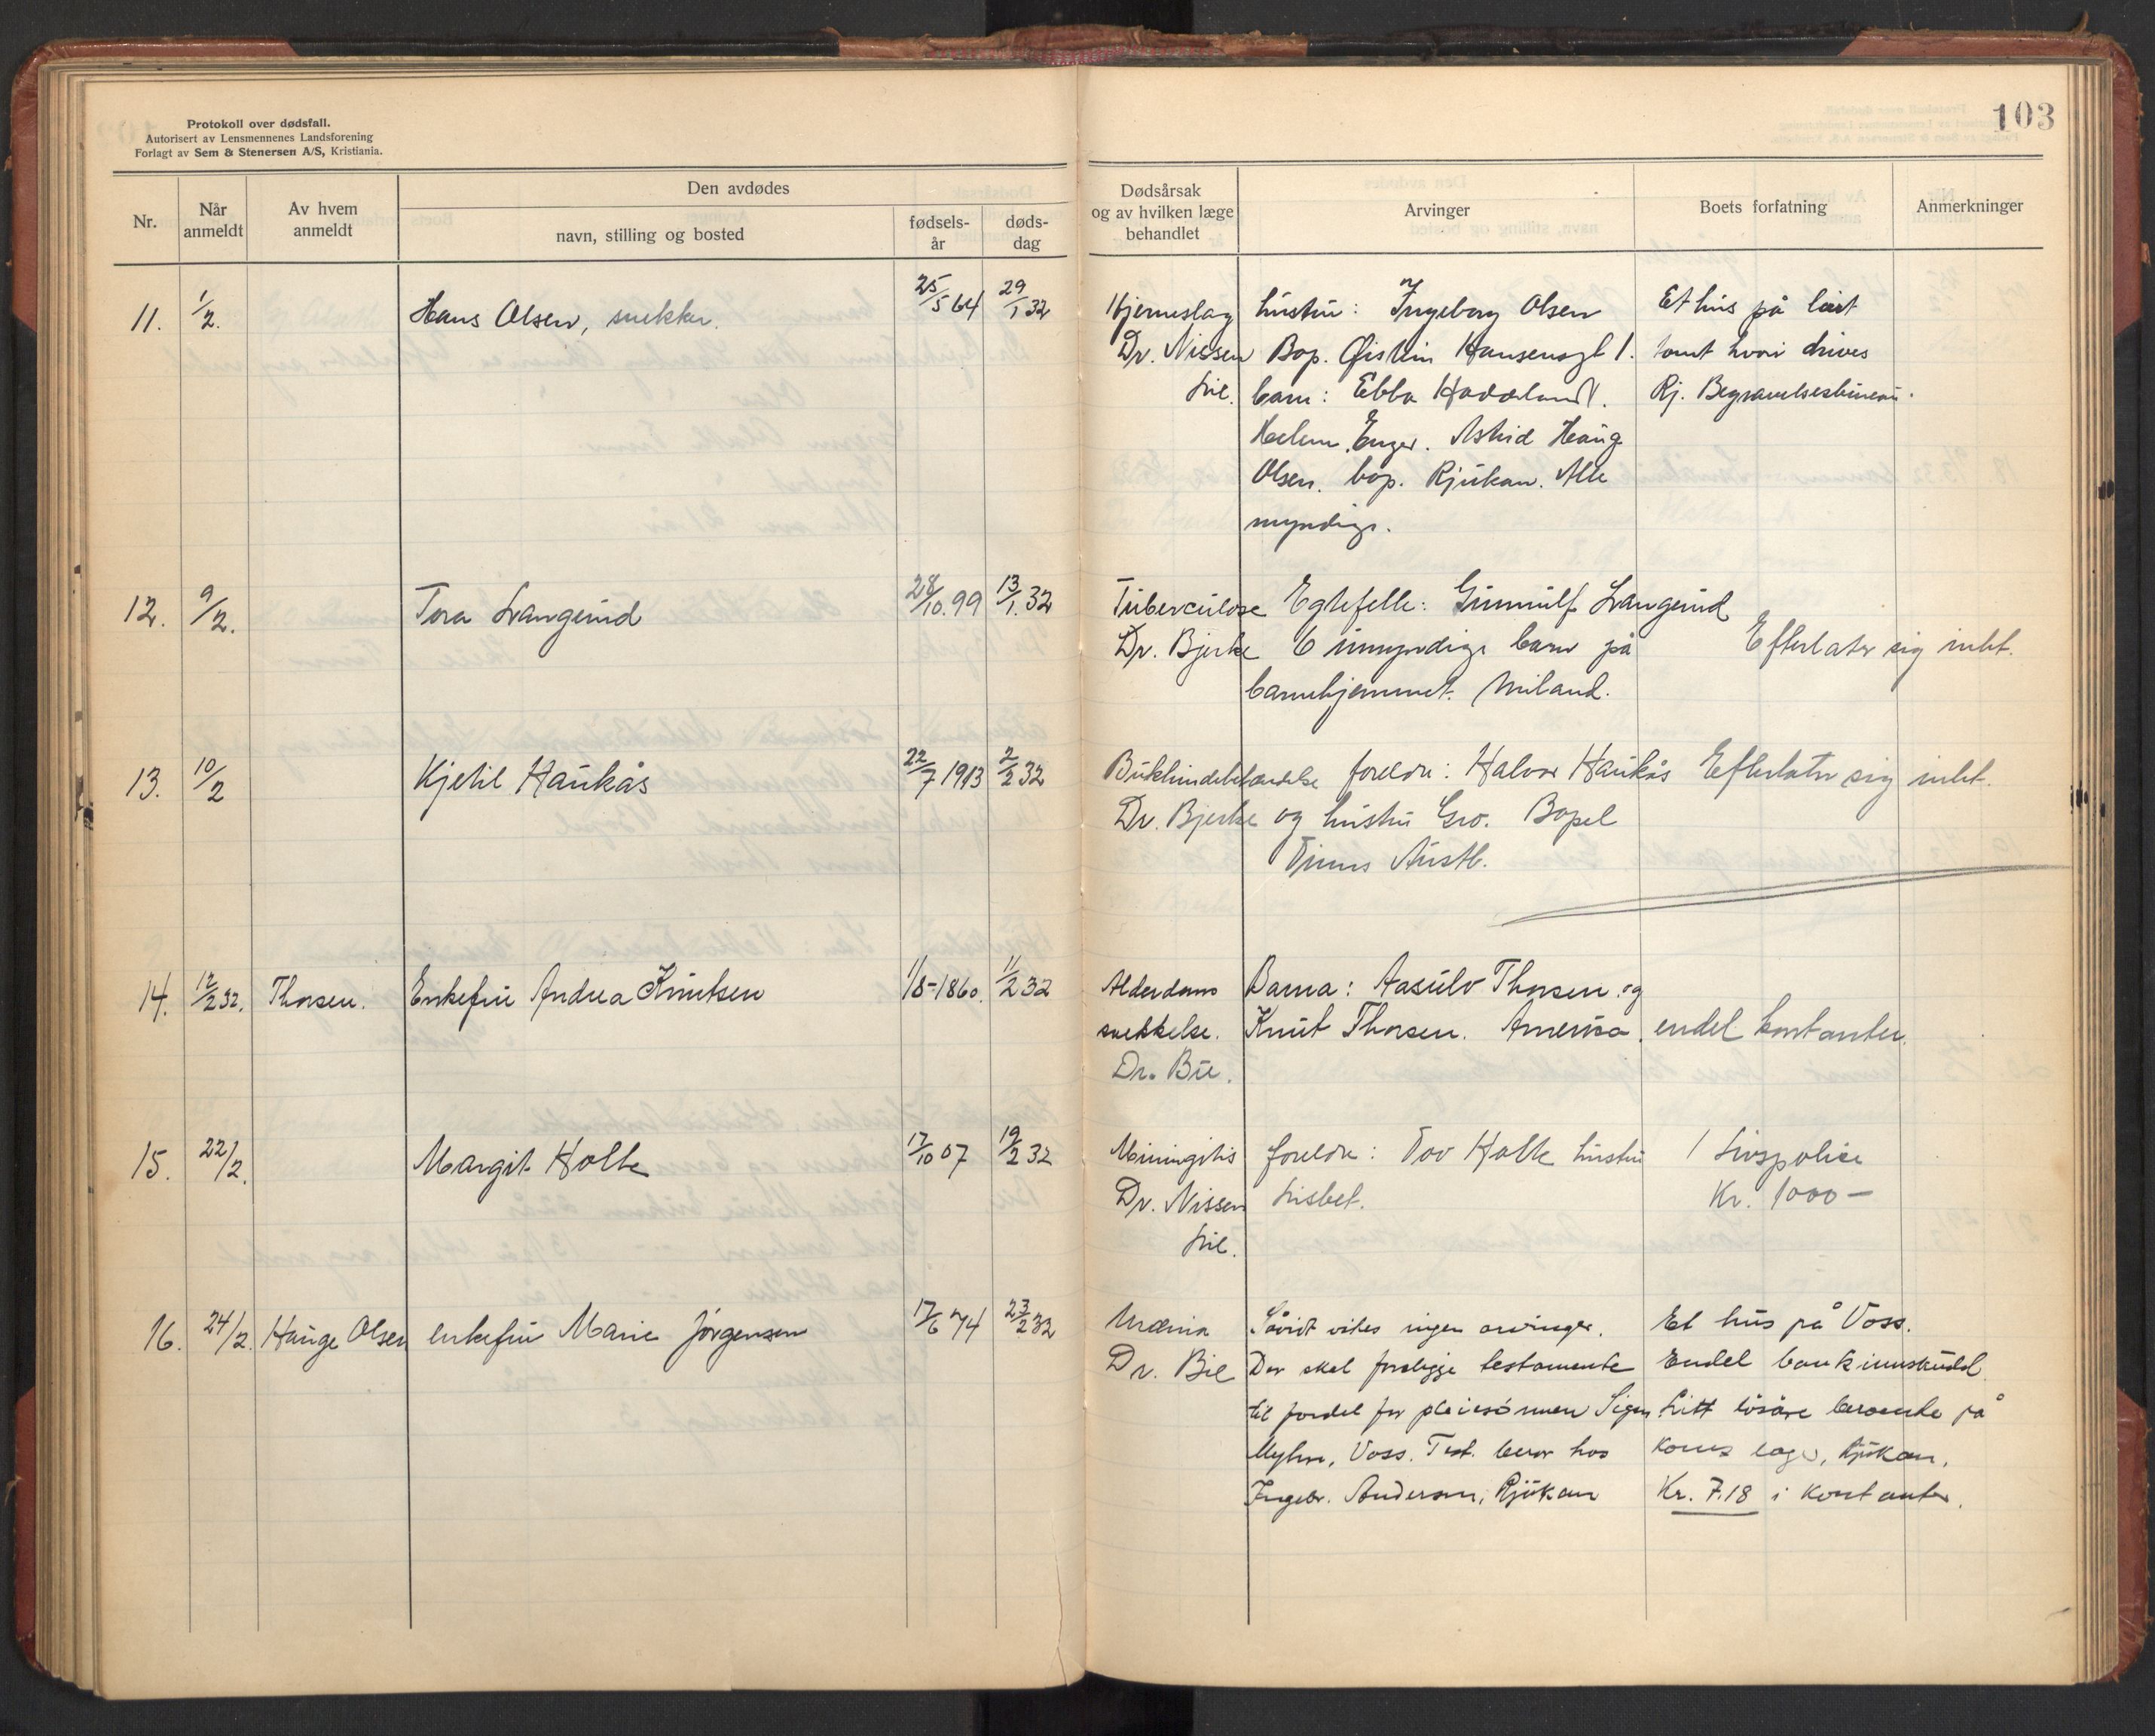 103
Protokoll over dødsfall.
Autorisert av Lensmennenes Landsforening
Forlagt av Sem & Stenersen A/S, Kristiania.
Nr.
Når anmeldt
Av hvem anmeldt
Den avdødes
navn, stilling og bosted
fødsels-år
døds-dag
Dødsårsak og av hvilken læge behandlet
Arvinger
Boets forfatning
Anmerkninger
11. 1/2. Hans Olsen, snekker. 25/5 64 29/1 32 Hjerneslag hustru: Ingeborg Olsen Et hus på leiet
Dr. Nissen Bop. Øistein Hansensgt 1. tomt hvori drives
Lie. barn: Ebba Hadeland. Rj. Begravelsesbureau.
Enger. Astrid Haug
Olsen. bop. Rjukan. Alle
myndige.
12. 9/2. Tora Langerud 28/10. 99 13/1. 32 Tuberculose Egtefelle: Gunnulf Langerud
Dr. Bjerke 6 umyndige barn på Efterlater sig intet.
barnehjemmet. Miland.
13. 10/2 Kjetil Haukås 22/7 1913 2/2 32 Bukhindebetændelse foreldre: Halvor Haukås Efterlater sig intet.
Dr. Bjerke og hustru Gro. Bopel
Tinns Austb.
14. 12/2 32. Thorsen. Enkefru Andrea Knutsen 1/8-1860. 11/2 32 Alderdoms Barna: Aasulv Thorsen og
svekkelse. Knut Thorsen. America. endel kontanter.
Dr. Bie.
15. 22/2. Margit Holte 17/10 07 19/2 32 Miningitis foreldre: Tov Holte hustru 1 Livspolise
Dr. Nissen Lisbet. Kr. 1000 —
Lie.
16. 24/2. Hauge Olsen enkefru Marie Jörgensen 17/6 74 23/2 32 Uræmia Såvidt vites ingen arvinger. Et hus på Voss.
Dr. Bie Der skal foreligge testamente Endel bankinnskudd
til fordel for pleiesönnen Litt lösöre beroende på
Voss. Test. beror hos lager, Rjukan.
Ingebr. Andersen, Rjukan Kr. 7.18 i kontanter.